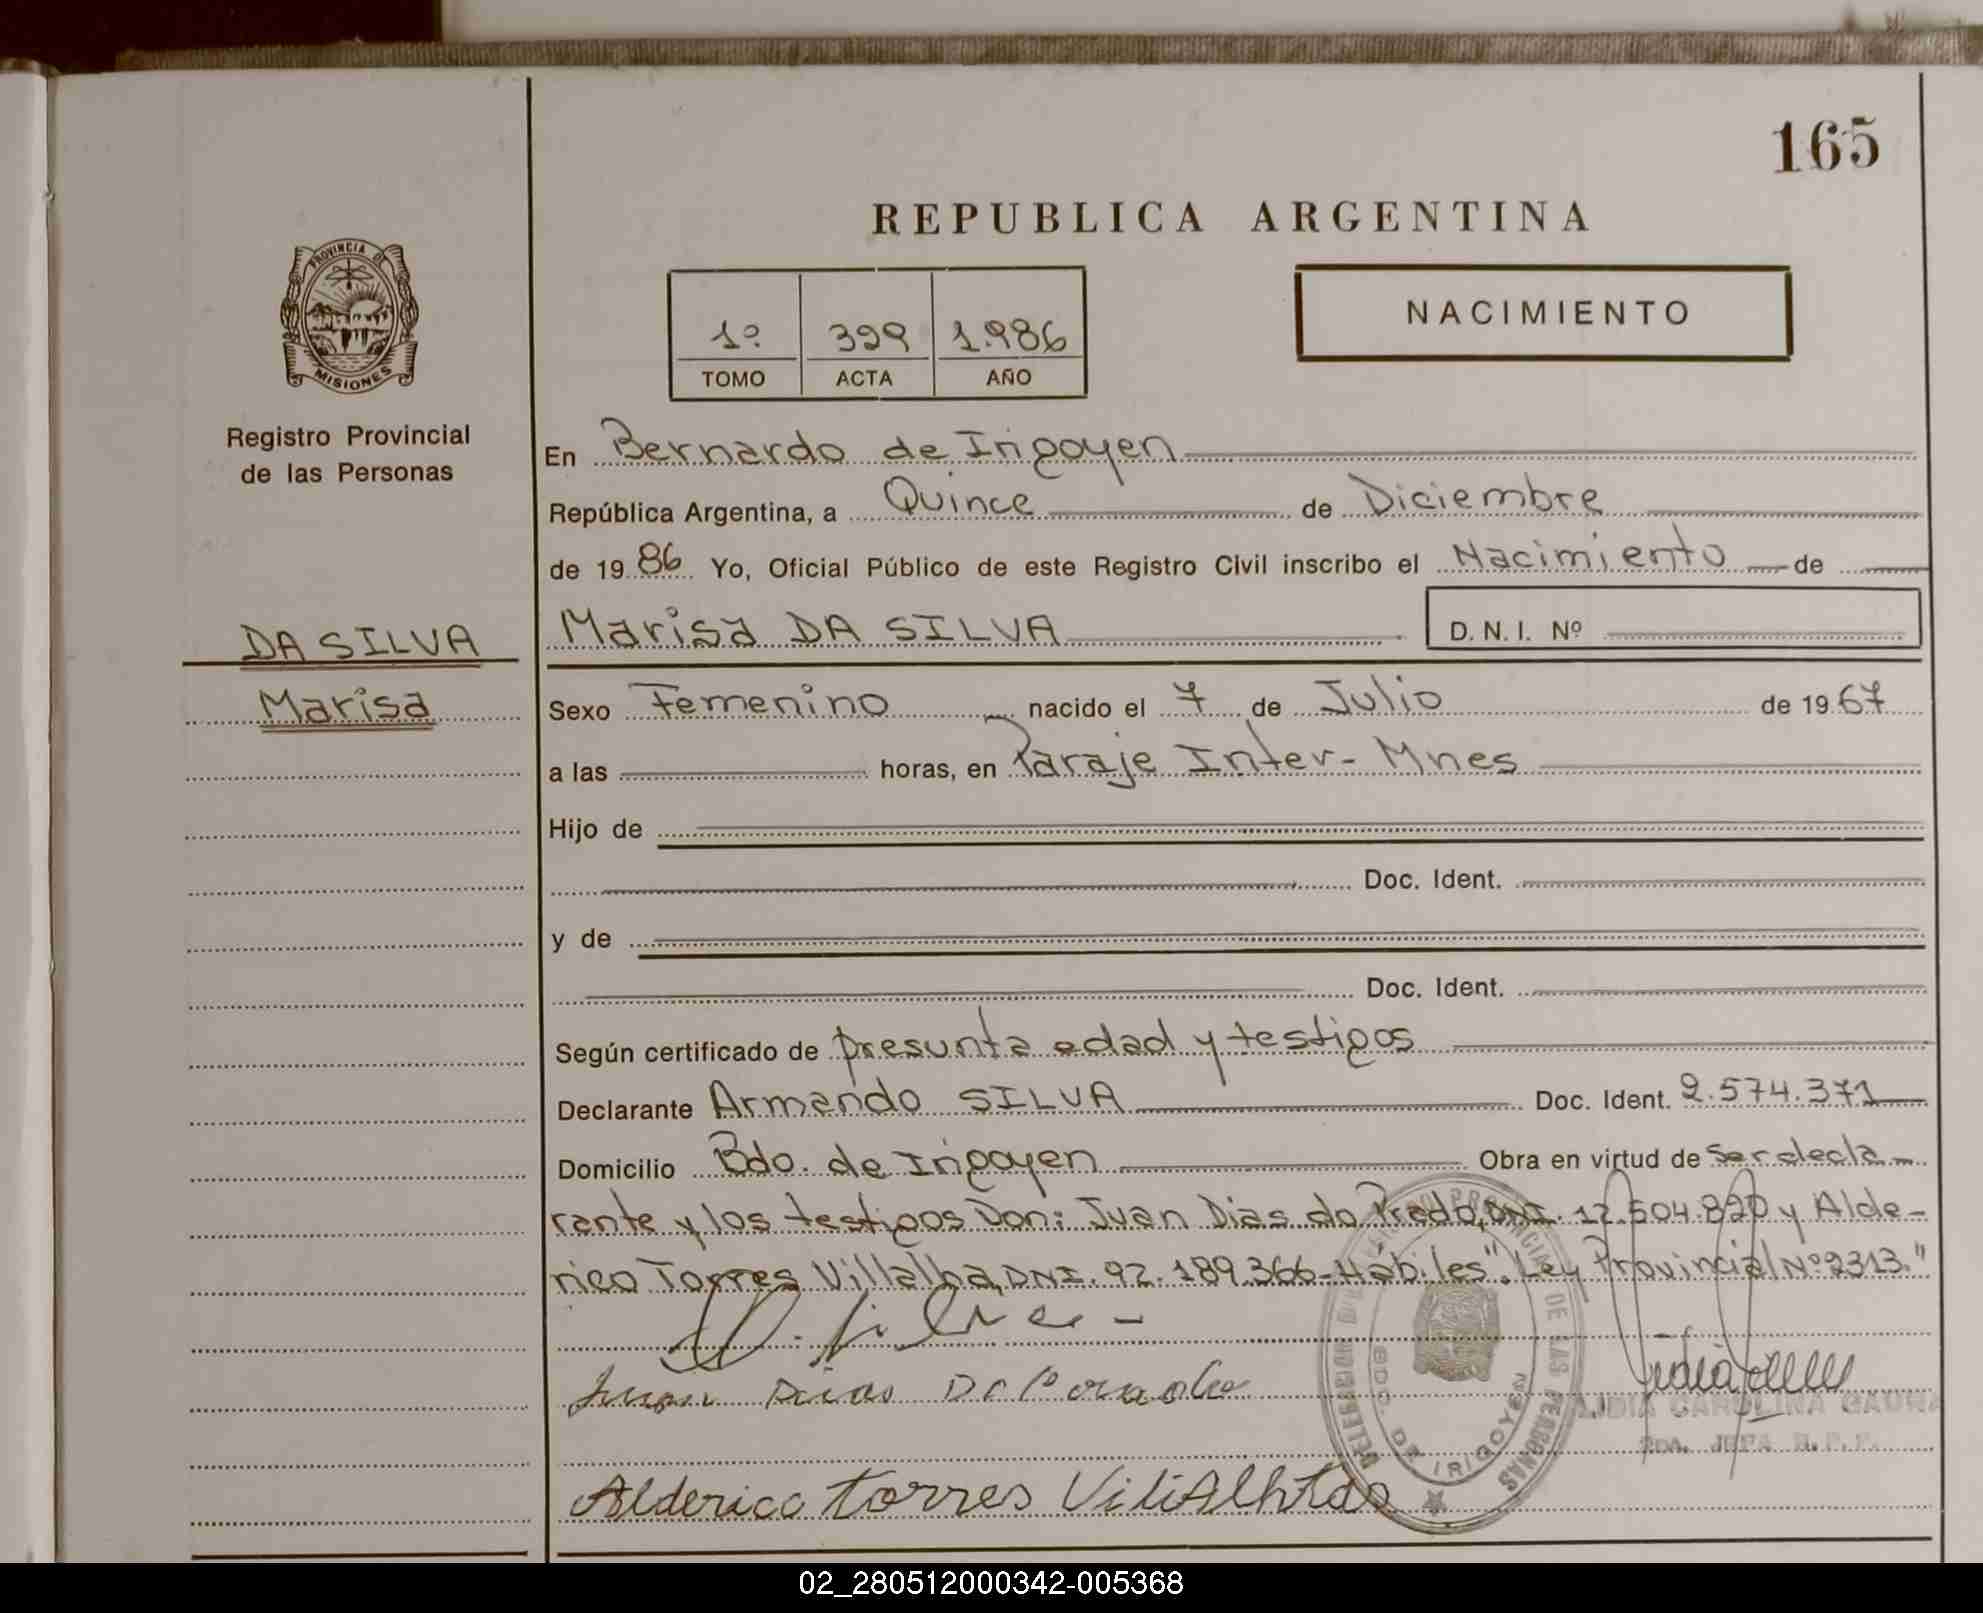 165
REPUBLICA ARGENTINA
PROVINCIA DE
MISIONES
1º 399 1.986
TOMO ACTA AÑO
NACIMIENTO
Registro Provincial
de las Personas
En Bernardo de Irigoyen
República Argentina, a Quince de Diciembre
de 1986 Yo, Oficial Público de este Registro Civil inscribo el Nacimiento de
DA SILVA
Marisa DA SILVA D.N.I. Nº
Marisa
Sexo Femenino nacido el 7 de Julio de 1967
a las horas, en Paraje Inter-Mnes
Hijo de
Doc. Ident.
y de
Doc. Ident.
Según certificado de presunta edad y testigos
Declarante Armando SILVA Doc. Ident. 2.574.371
Domicilio Bdo. de Irigoyen Obra en virtud de ser decla-
rante y los testigos Don: Juan Dias do Prado, DNI. 12.504.820 y Alde-
rico Torres Villalba, DNI. 92.189.366-Hábiles". Ley Provincial Nº2313."
Juan Dias
Alderico torres
BDO DE IRIGOYEN
LIDIA CAROLINA
2DA. JEFA R.P.P.
02_280512000342-005368